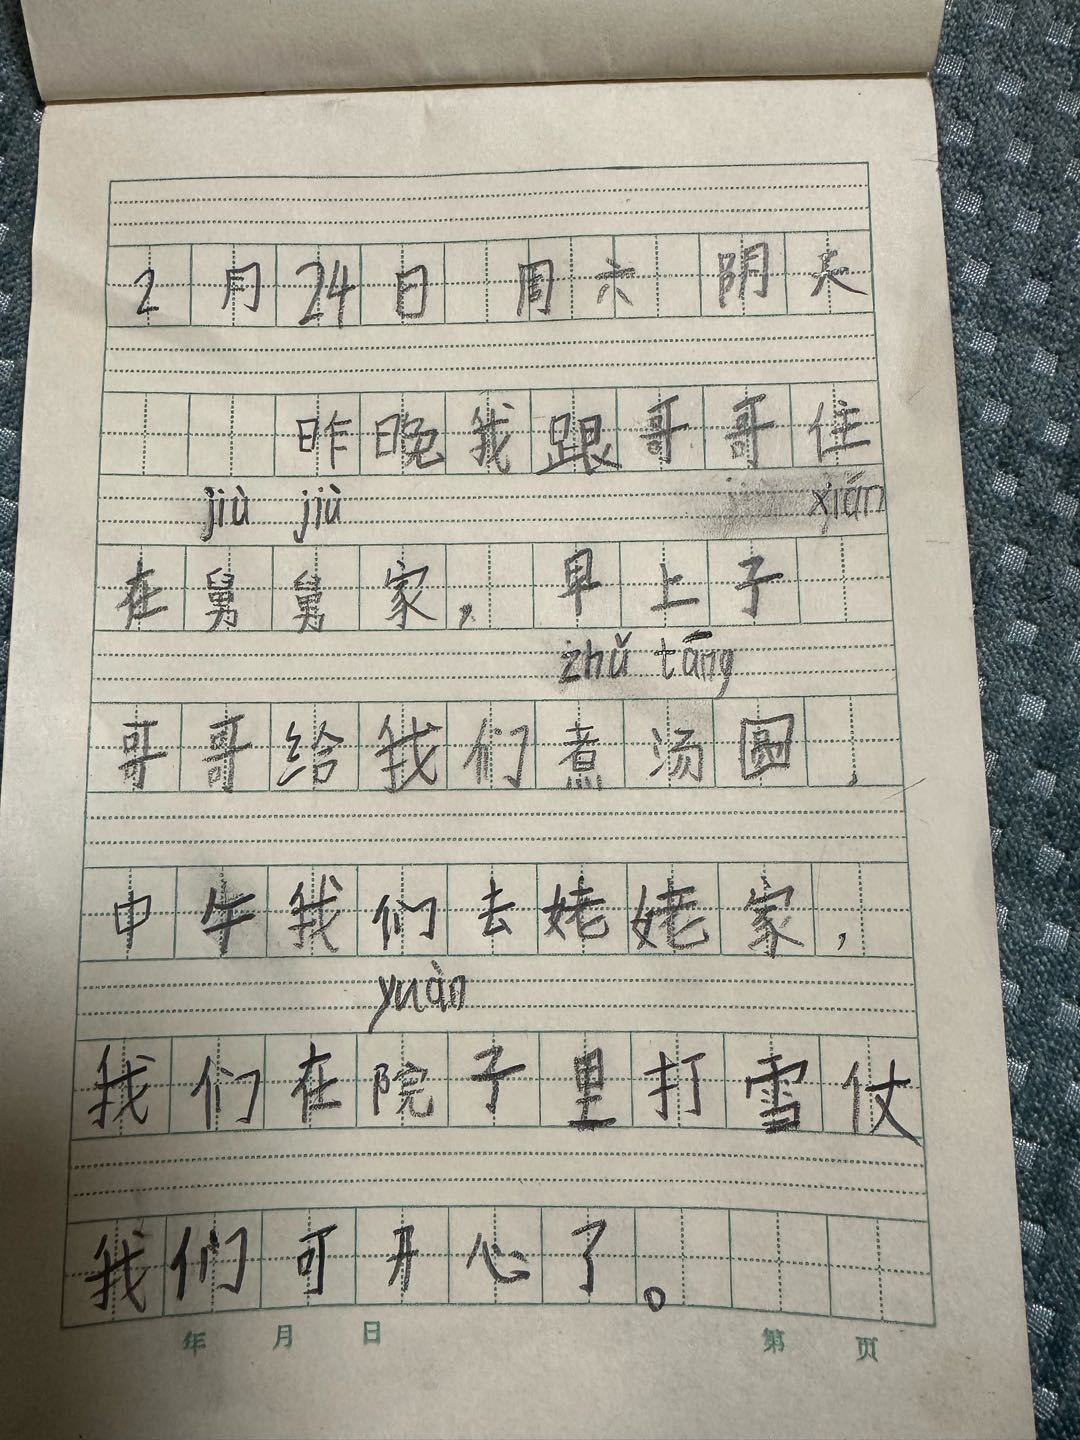 2月24日 周六 阴天
昨晚我跟哥哥住
jiù jiù xiān
在舅舅家，早上子
zhǔ tāng
哥哥给我们煮汤圆，
中午我们去姥姥家，
yuàn
我们在院子里打雪仗
我们可开心了。
年 月 日 第 页